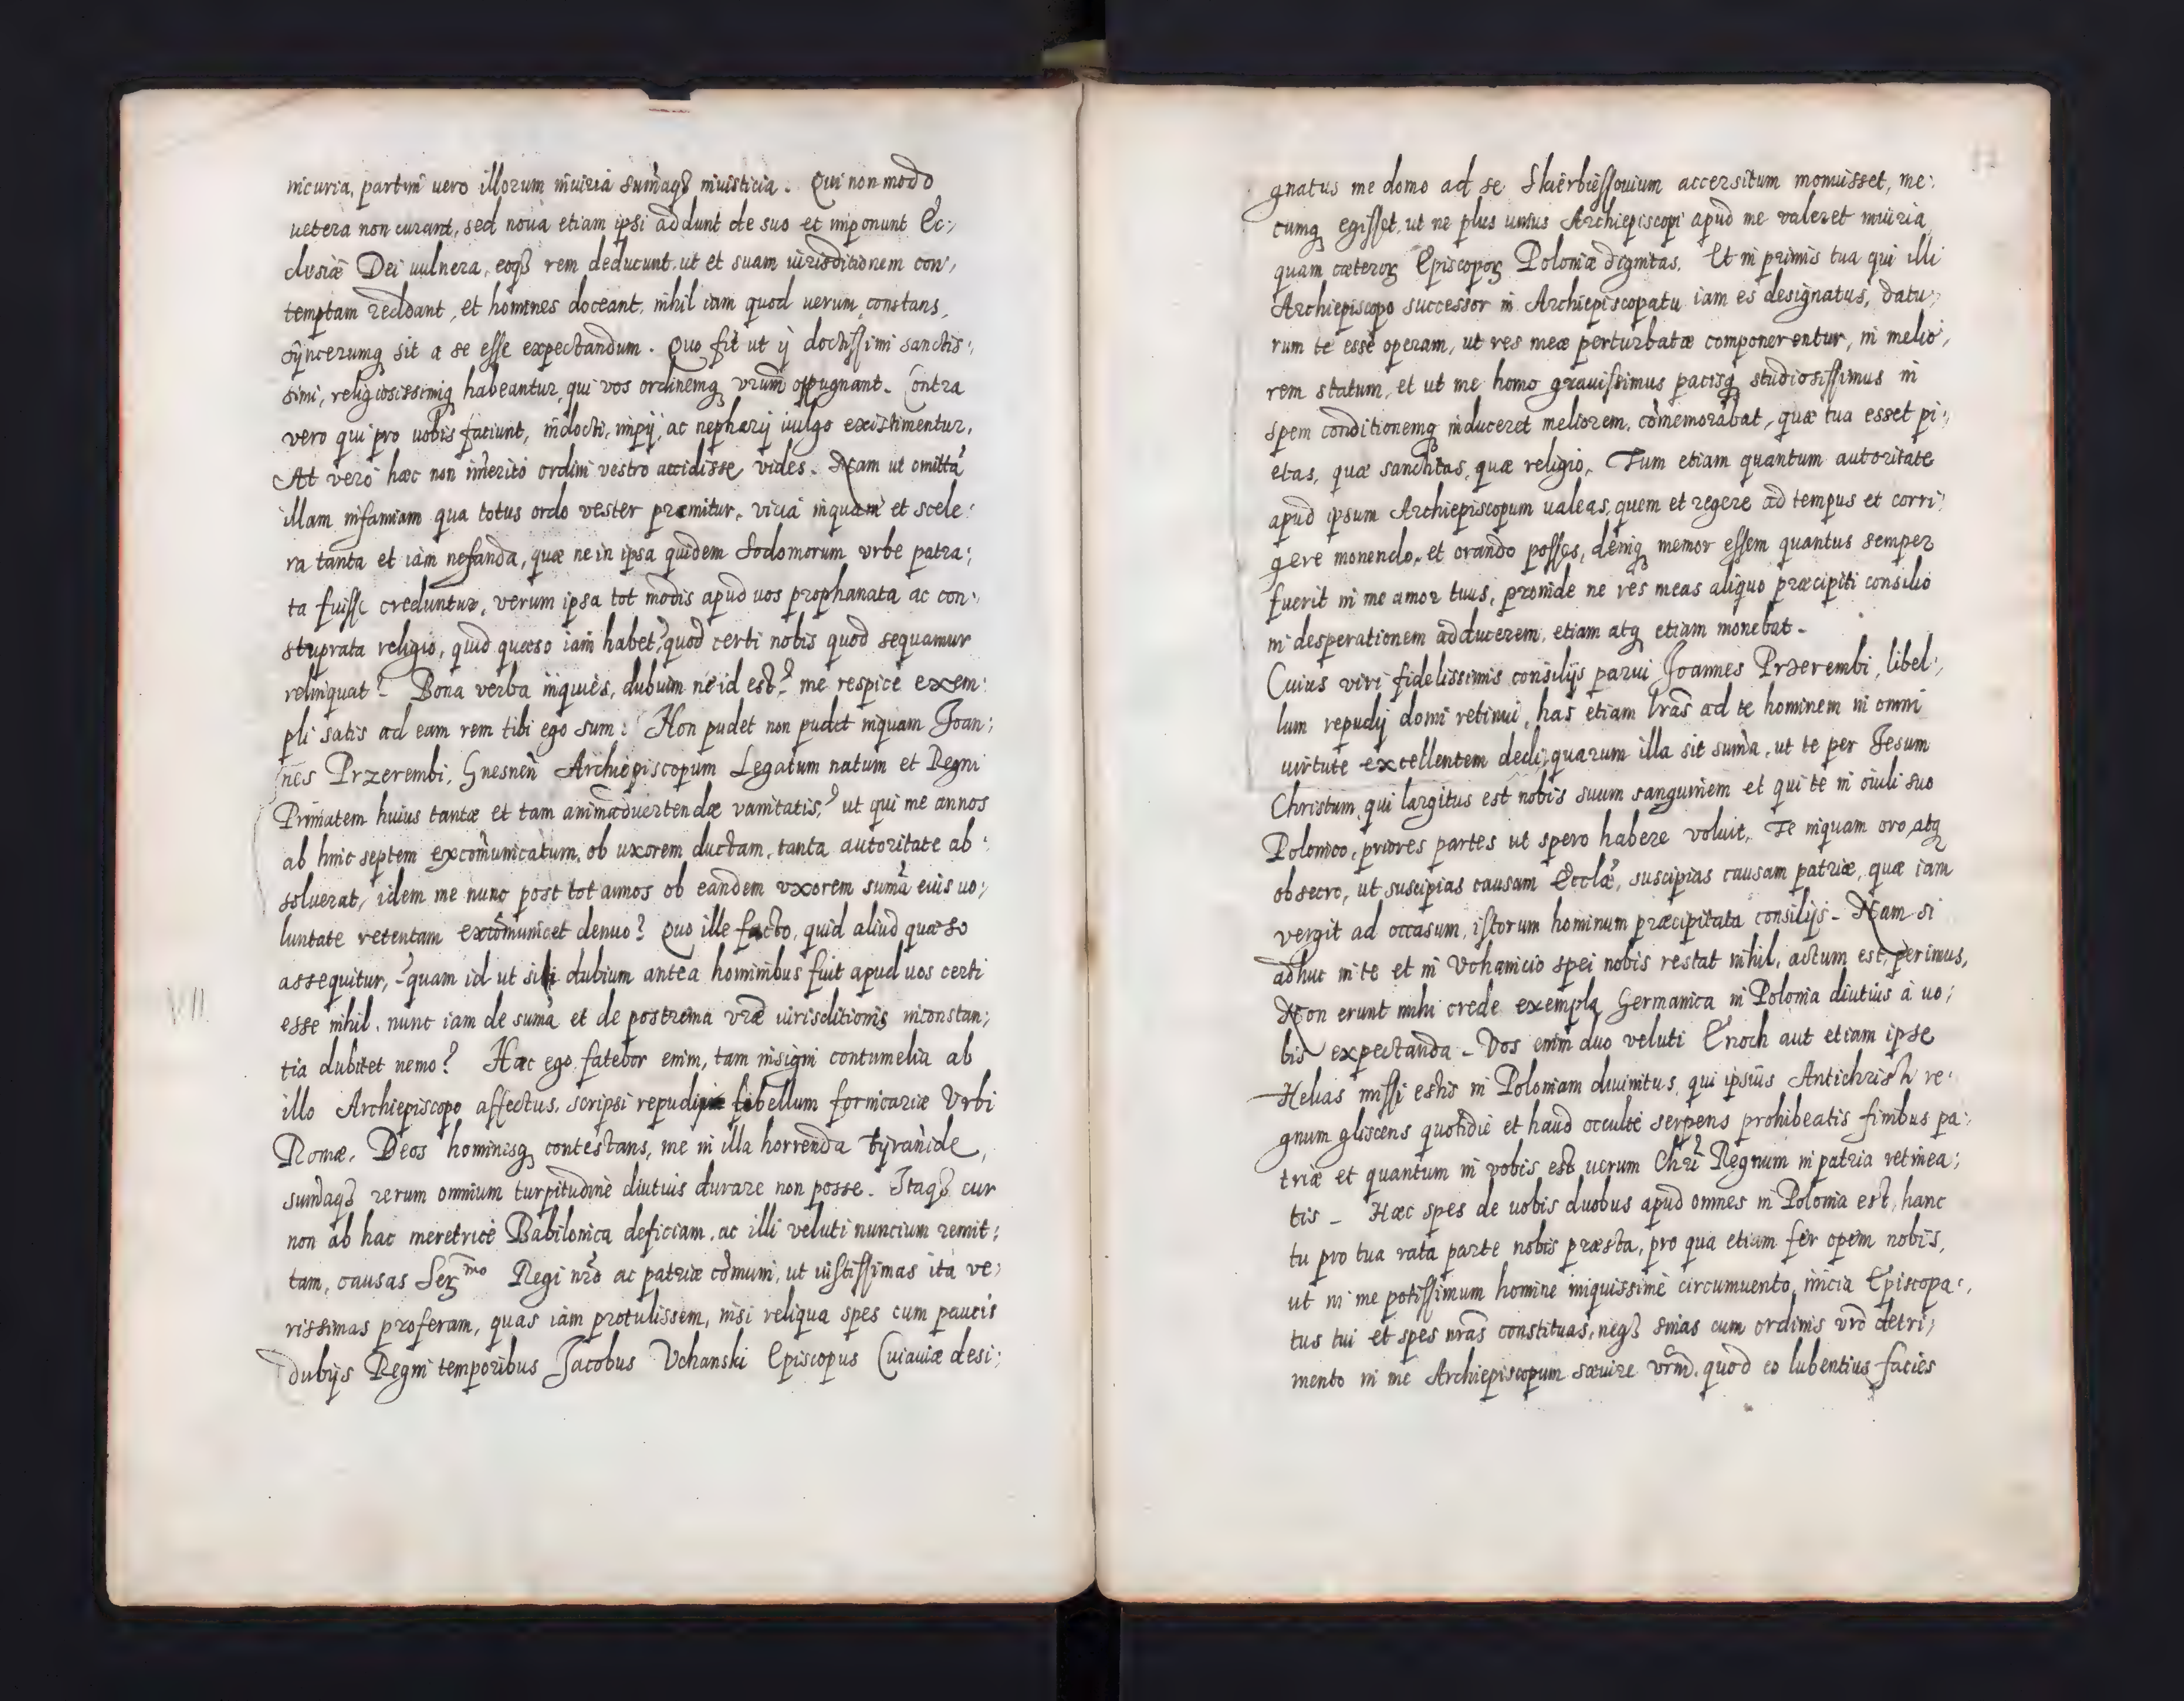 incuria, partim uero illorum iniuria sum̃aqꝫ iniusticia. Qui non modo
uetera non curant, sed noua etiam ipsi addunt de suo et imponunt Ec:,
clesiæ Dei uulnera, eoqꝫ rem deducunt ut et suam iurisditionem con:,
temptam reddant, et homines doceant, nihil iam quod uerum, constans,
syncerumqꝫ sit a se esse expectandum. Quo fit ut ij doctissimi sanctis:,
simi, religiosissimiqꝫ habeantur, qui vos ordinemqꝫ vrum̃ oppugnant. Contra
vero qui pro uobis faciunt, indocti, impij, ac nepharij uulgo existimentur.
At vero hæc non im̃erito ordini vestro accidisse vides. Nam ut omittã
illam infamiam qua totus ordo vester præmitur, vicia inquam et scele:
ra tanta et iam nefanda, quæ ne in ipsa quidem Sodomorum vrbe patra:,
ta fuisse creduntur, verum ipsa tot modis apud uos prophanata ac con:,
stuprata religio, quid quæso iam habet, quod certi nobis quod sequamur
relinquat? Bona verba inquies, dubium ne id est? me respice exem:
pli satis ad eam rem tibi ego sum: Non pudet non pudet inquam Joan:,
nes Przerembi, Gnesneñ Archiepiscopum Legatum natum et Regni
Primatem huius tantæ et tam animaduertendæ vanitatis? ut qui me annos
ab hinc septem excom̃unicatum, ob uxorem ductam, tanta autoritate ab:
soluerat, idem me nunc post tot annos ob eandem vxorem sum̃a eius uo:,
luntate retentam excom̃unicet denuo? Quo ille facto, quid aliud quæso
assequitur, quam id ut sibi dubium antea hominibus fuit apud uos certi
esse nihil, nunc iam de sum̃a et de postrema vrae iurisditionis inconstan:,
tia dubitet nemo? Hæc ego fatebor enim, tam insigni contumelia ab
illo Archiepiscopo affectus, scripsi repudij libellum fornicariæ Vrbi
Romæ, Deos hominesqꝫ contestans, me in illa horrenda tyrañide,
sum̃aqꝫ rerum omnium turpitudine diutius durare non posse. Itaqꝫ cur
non ab hac meretrice Babilonica deficiam, ac illi veluti nuncium remit:
tam, causas Ser.mo Regi nr̃o ac patriæ com̃uni, ut iustissimas ita ve:,
rissimas proferam, quas iam protulissem, nisi reliqua spes cum paucis
dubijs Regni temporibus Jacobus Vchanski Episcopus Cuiauiæ desi:,
gnatus me domo ad se Skierbiessouium accersitum monuisset, me:
cumqꝫ egisset, ut ne plus unius Archiepiscopi apud me valeret iniuria
quam cæterorꝫ Episcoporꝫ Poloniæ dignitas. Et in primis tua qui illi
Archiepiscopo successor in Archiepiscopatu iam es designatus, datu:,
rum te esse operam, ut res meæ perturbatæ componerentur, in melio:,
rem statum, et ut me homo grauissimus pacisqꝫ studiosissimus in
spem conditionemqꝫ induceret meliorem, com̃emorabat, quæ tua esset pi:,
etas, quæ sanctitas, quæ religio, Tum etiam quantum autoritate
apud ipsum Archiepiscopum ualeas, quem et regere ad tempus et corri:
gere monendo, et orando posses, deniqꝫ memor essem quantus semper
fuerit in me amor tuus, proinde ne res meas aliquo præcipiti consilio
in desperationem adducerem, etiam atqꝫ etiam monebat.
Cuius viri fidelissimis consilijs parui Joannes Przerembi, libel:,
lum repudij domi retinui, has etiam lrãs ad te hominem in omni
uirtute excellentem dedi, quarum illa sit sum̃a, ut te per Jesum
Christum, qui largitus est nobis suum sanguinem et qui te in ouili suo
Polonico, priores partes ut spero habere voluit, Te inquam oro atqꝫ
obsecro, ut suscipias causam Ecclæ̃, suscipias causam patriæ, quæ iam
vergit ad occasum, istorum hominum præcipitata consilijs. Nam si
adhuc in te et in Vchanicio spei nobis restat nihil, actum est, perimus,
Non erunt mihi crede exempla Germanica in Polonia diutius a uo:,
bis expectanda. Vos enim duo veluti Enoch aut etiam ipse
Helias missi estis in Poloniam diuinitus, qui ipsius Antichristi re:
gnum gliscens quotidie et haud occulte serpens prohibeatis finibus pa:
triæ et quantum in vobis est uerum Chrĩ Regnum in patria retinea:,
tis. Hæc spes de uobis duobus apud omnes in Polonia est, hanc
tu pro tua rata parte nobis præsta, pro qua etiam fer opem nobis,
ut in me potissimum homine iniquissime circumuento, inicia Episcopa:,
tus tui et spes nrãs constituas, neqꝫ sinas cum ordinis vrĩ detri:,
mento in me Archiepiscopum sæuire vrm̃. quod eo lubentius facies